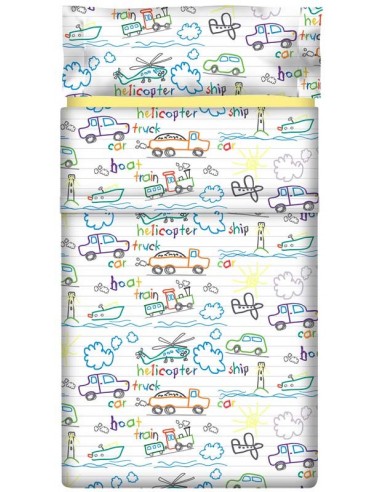 train
car
boat
helicopter ship
truck
car car
boat
train
helicopter ship
truck
car car
boat
train
helicopter ship
truck
car car
boat
train